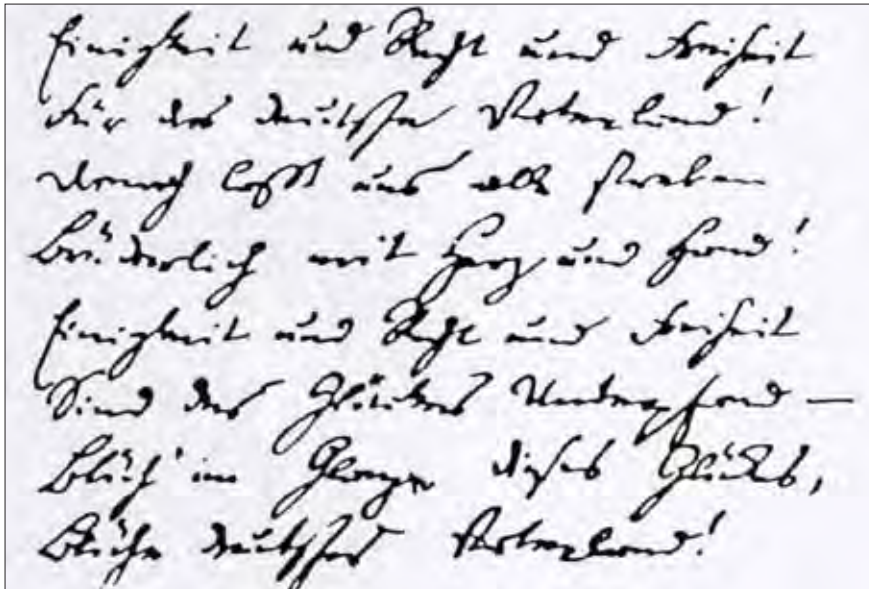 Einigkeit und Recht und Freiheit
Für das deutsche Vaterland!
Danach laßt uns alle streben
Brüderlich mit Herz und Hand!
Einigkeit und Recht und Freiheit
Sind des Glückes Unterpfand —
Blüh' im Glanze dieses Glückes,
Blühe deutsches Vaterland!